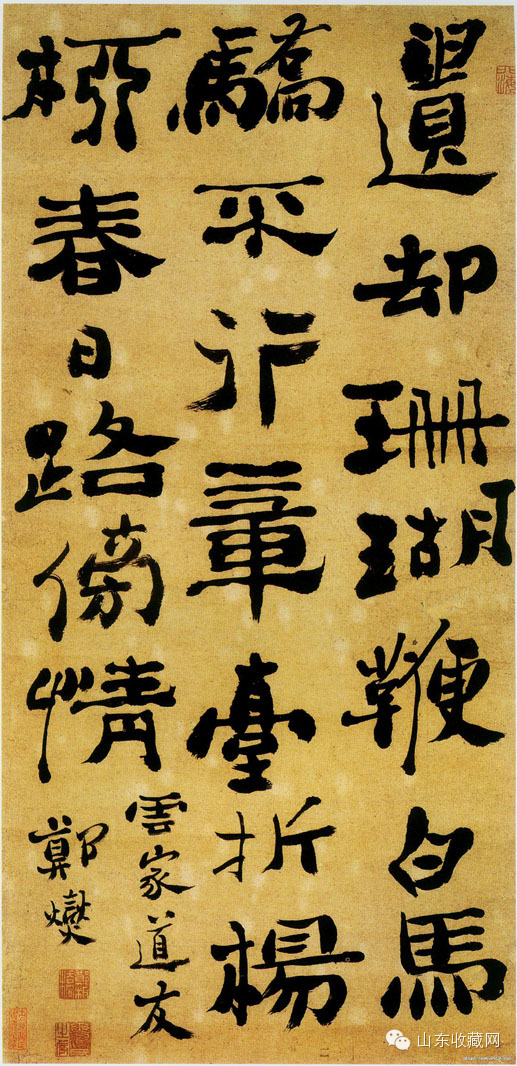 遺却珊瑚鞭白馬
驕不行章臺折楊
柳春日路傍情
雲家道友
鄭燮
山东收藏网